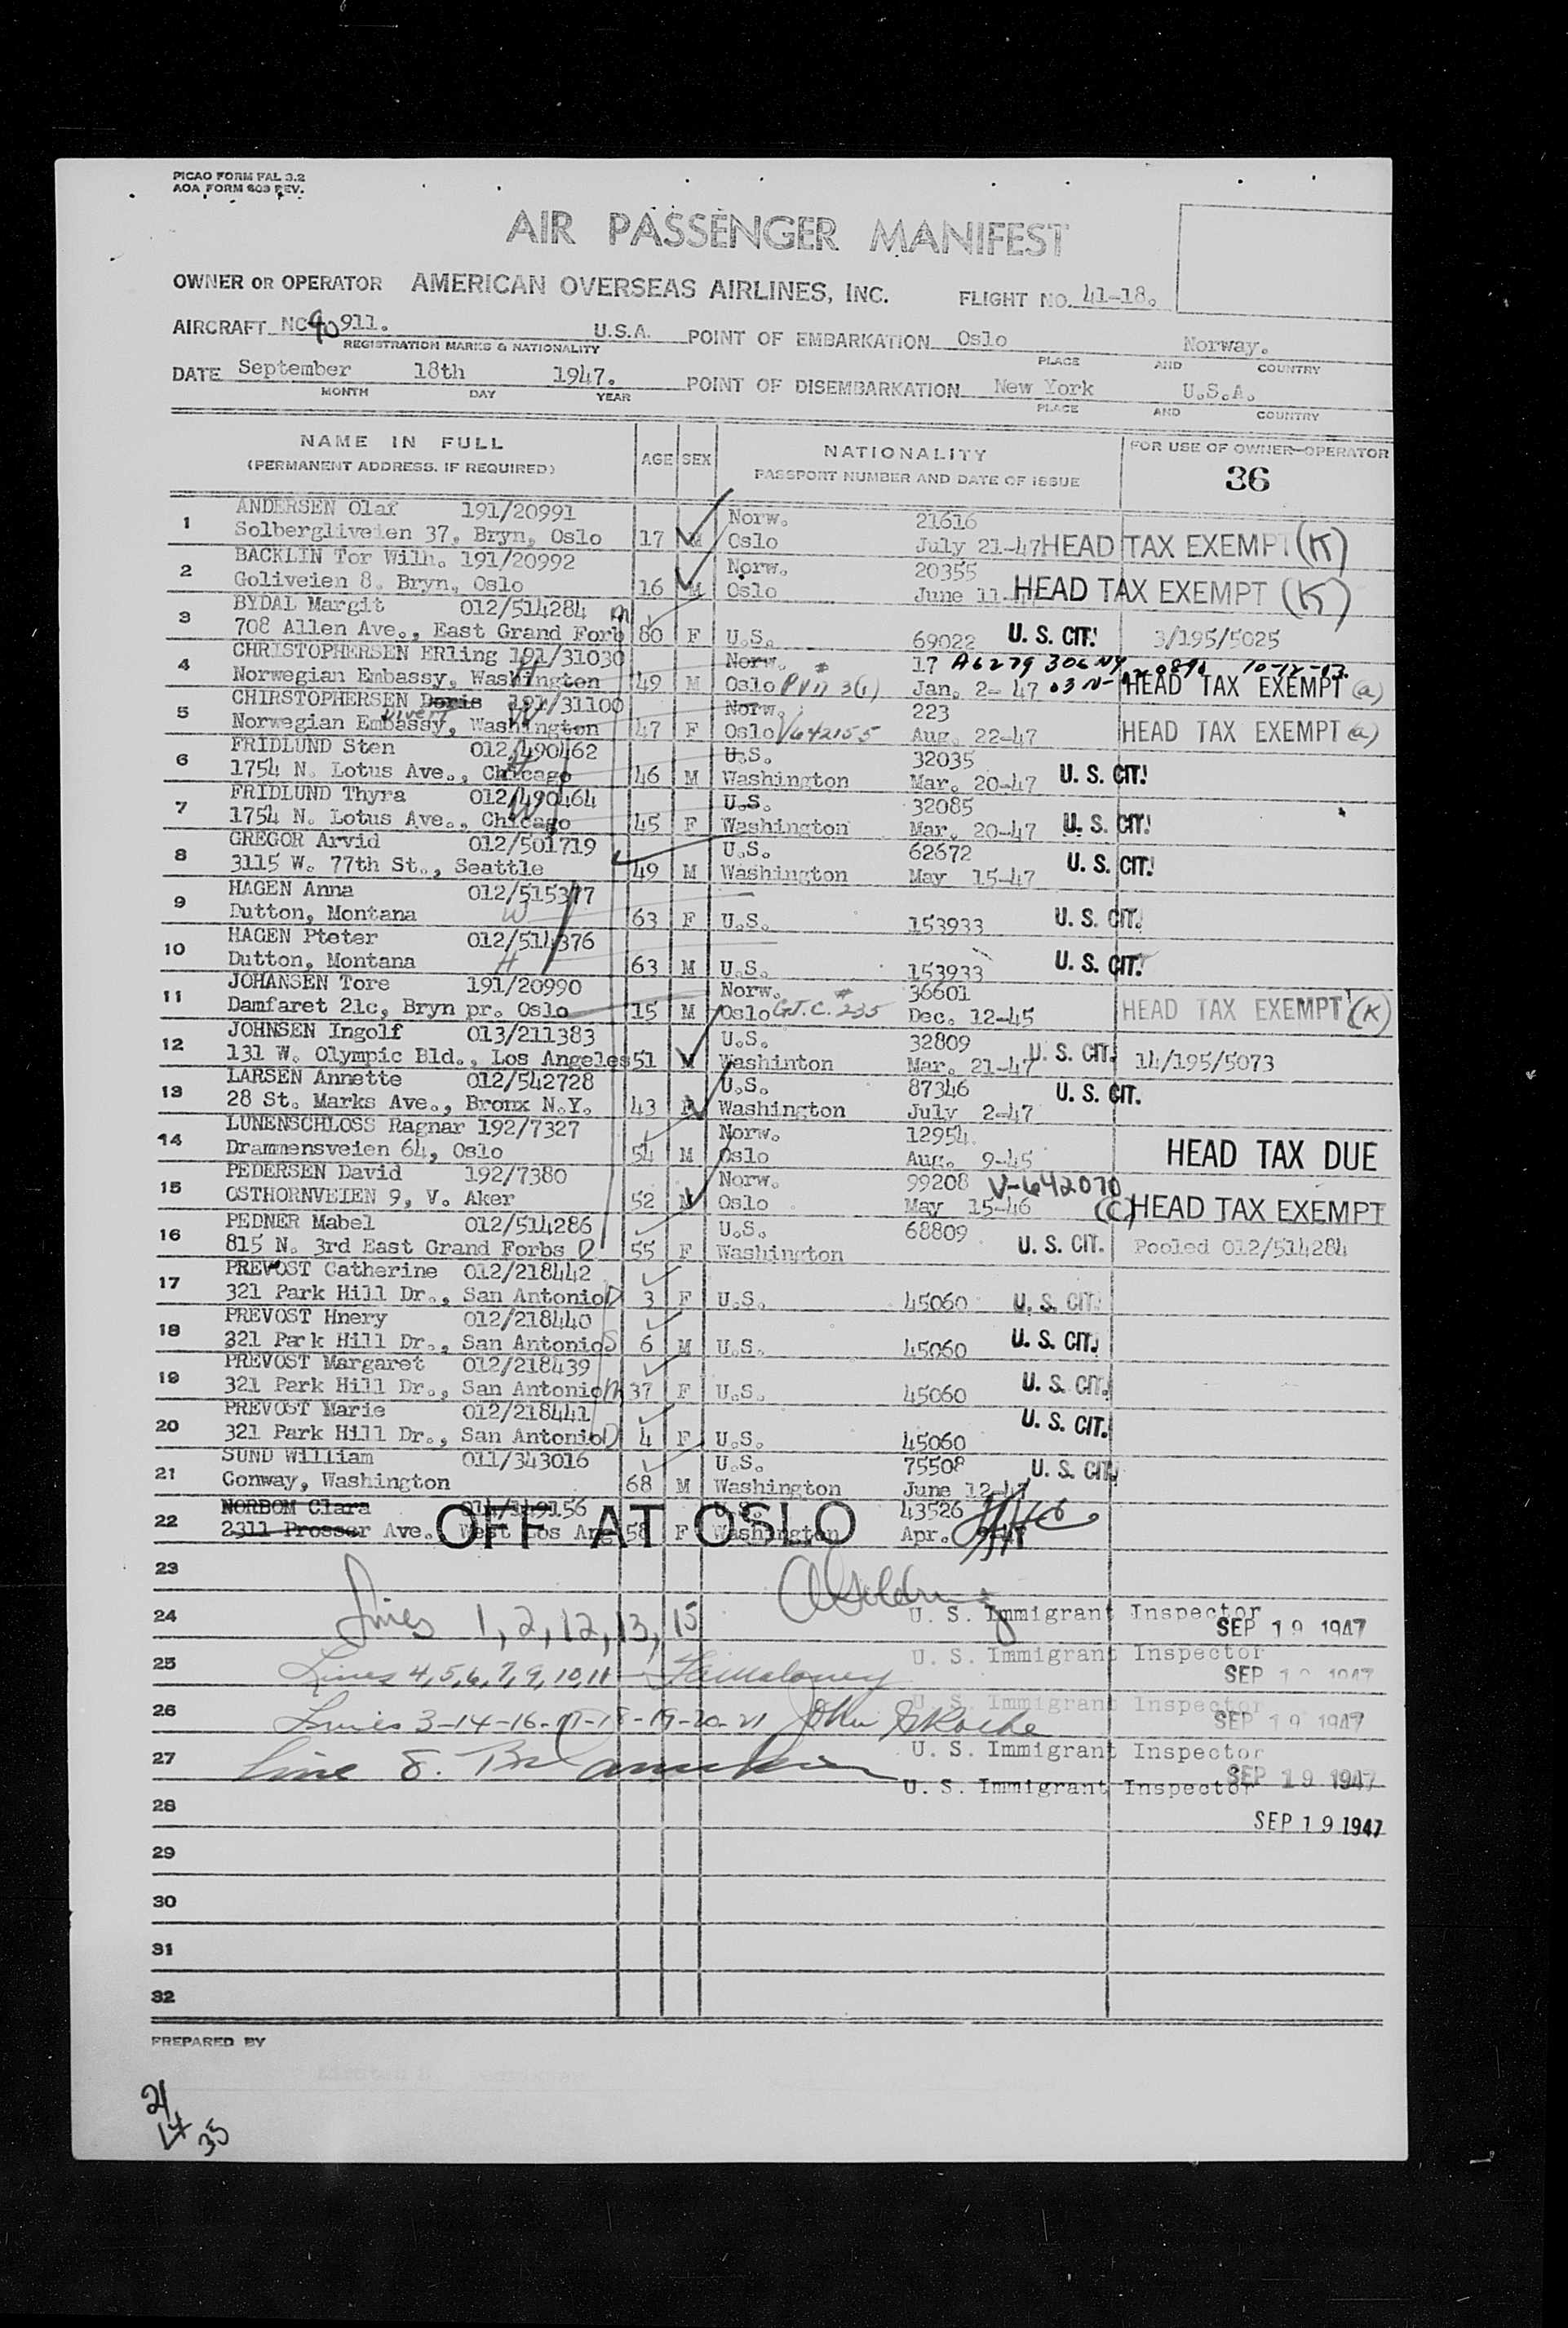 PICAO FORM FAL 3.2
AOA FORM 603 REV.
AIR PASSENGER MANIFEST
OWNER OR OPERATOR AMERICAN OVERSEAS AIRLINES, INC. FLIGHT NO. 41-18.
AIRCRAFT NC90911. U.S.A. POINT OF EMBARKATION Oslo Norway.
REGISTRATION MARKS & NATIONALITY PLACE AND COUNTRY
DATE September 18th 1947. POINT OF DISEMBARKATION New York U.S.A.
MONTH DAY YEAR PLACE AND COUNTRY
NAME IN FULL AGE SEX NATIONALITY FOR USE OF OWNER-OPERATOR
(PERMANENT ADDRESS, IF REQUIRED) PASSPORT NUMBER AND DATE OF ISSUE 36
1 ANDERSEN Olaf 191/20991 Norw. 21616
Solbergliveien 37, Bryn, Oslo 17 M Oslo July 21-47 HEAD TAX EXEMPT (K)
2 BACKLIN Tor Wilh. 191/20992 Norw. 20355
Goliveien 8, Bryn, Oslo 16 M Oslo June 11-47 HEAD TAX EXEMPT (K)
3 BYDAL Margit 012/514284 m
708 Allen Ave., East Grand Forb 80 F U.S. 69022 U. S. CIT. 3/195/5025
4 CHRISTOPHERSEN ERling 191/31030 Norw. 17 A6279 306 NY 10-12-
Norwegian Embassy, Washington H 49 M Oslo Jan. 2-47 HEAD TAX EXEMPT (a)
5 CHIRSTOPHERSEN Doris 191/31100 Norw. 223
Norwegian Embassy, Washington W 47 F Oslo V642155 Aug. 22-47 HEAD TAX EXEMPT (a)
6 FRIDLUND Sten 012/490462 U.S. 32035
1754 N. Lotus Ave., Chicago H 46 M Washington Mar. 20-47 U. S. CIT.
7 FRIDLUND Thyra 012/490464 U.S. 32085
1754 N. Lotus Ave., Chicago W 45 F Washington Mar. 20-47 U. S. CIT.
8 GREGOR Arvid 012/501719 U.S. 62672
3115 W. 77th St., Seattle 49 M Washington May 15-47 U. S. CIT.
9 HAGEN Anna 012/515377
Dutton, Montana W 63 F U.S. 153933 U. S. CIT.
10 HAGEN Pteter 012/514376
Dutton, Montana H 63 M U.S. 153933 U. S. CIT.
11 JOHANSEN Tore 191/20990 Norw. 36601
Damfaret 21c, Bryn pr. Oslo 15 M Oslo G.T.C. #235 Dec. 12-45 HEAD TAX EXEMPT (K)
12 JOHNSEN Ingolf 013/211383 U.S. 32809
131 W. Olympic Bld., Los Angeles 51 M Washinton Mar. 21-47 U. S. CIT. 14/195/5073
13 LARSEN Annette 012/542728 U.S. 87346
28 St. Marks Ave., Bronx N.Y. 43 F Washington July 2-47 U. S. CIT.
14 LUNENSCHLOSS Ragnar 192/7327 Norw. 12954
Drammensveien 64, Oslo 54 M Oslo Aug. 9-45 HEAD TAX DUE
15 PEDERSEN David 192/7380 Norw. 99208 V-642070
OSTHORNVEIEN 9, V. Aker 52 M Oslo May 15-46 (C) HEAD TAX EXEMPT
16 PEDNER Mabel 012/514286 U.S. 68809
815 N. 3rd East Grand Forbs D 55 F Washington U. S. CIT. Pooled 012/514284
17 PREVOST Catherine 012/218442
321 Park Hill Dr., San Antonio D 3 F U.S. 45060 U. S. CIT.
18 PREVOST Hnery 012/218440
321 Park Hill Dr., San Antonio S 6 M U.S. 45060 U. S. CIT.
19 PREVOST Margaret 012/218439
321 Park Hill Dr., San Antonio M 37 F U.S. 45060 U. S. CIT.
20 PREVOST Marie 012/218441
321 Park Hill Dr., San Antonio D 4 F U.S. 45060 U. S. CIT.
21 SUND William 011/343016 U.S. 75508
Conway, Washington 68 M Washington June 12-47 U. S. CIT.
22 NORBOM Clara 014/149156 U.S. 43526
2311 Prosser Ave. West Los Ang 58 F Washington Apr.
OFF AT OSLO
23
24 Lines 1, 2, 12, 13, 15 U. S. Immigrant Inspector
SEP 19 1947
25 Lines 4, 5, 6, 7, 9, 10, 11 U. S. Immigrant Inspector
SEP 19 1947
26 Lines 3-14-16-17-18-19-20-21 John U. S. Immigrant Inspector
SEP 19 1947
27 Line 8. U. S. Immigrant Inspector
SEP 19 1947
U. S. Immigrant Inspector
28 SEP 19 1947
29
30
31
32
PREPARED BY
21
14
35